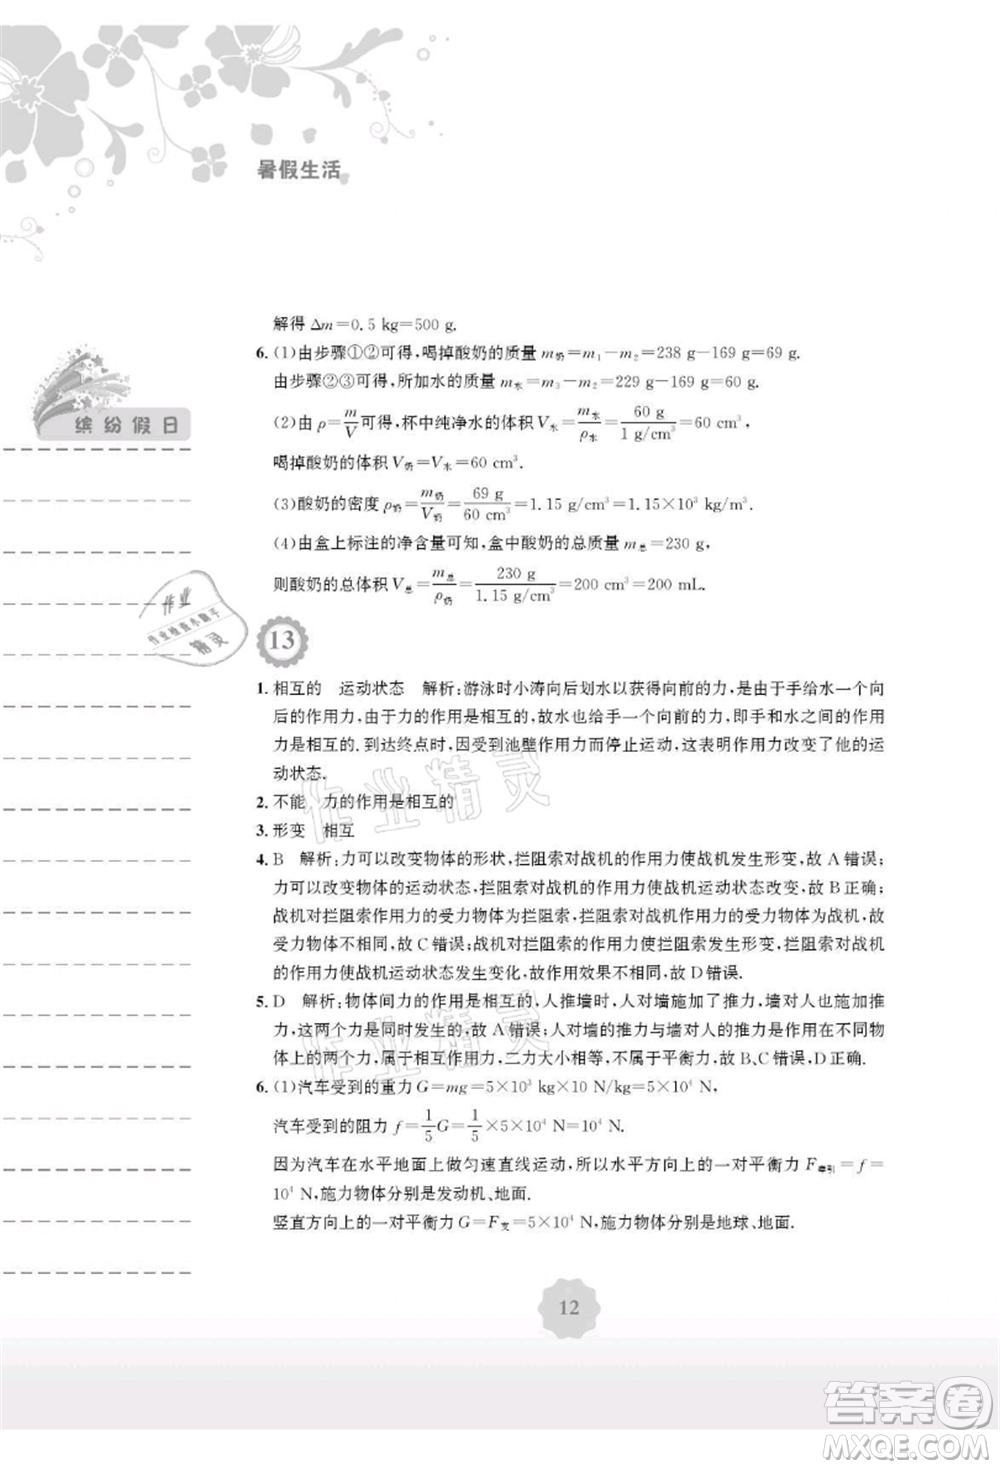 暑假生活
解得 Δm=0.5 kg=500 g.
6. (1)由步骤①②可得,喝掉酸奶的质量 m奶=m₁-m₂=238 g-169 g=69 g.
由步骤②③可得,所加水的质量 m水=m₃-m₂=229 g-169 g=60 g.
(2)由 ρ=m/V可得,杯中纯净水的体积 V水=m水/ρ水=60 g/1 g/cm³=60 cm³,
缤纷假日
喝掉酸奶的体积 V奶=V水=60 cm³.
(3)酸奶的密度 ρ奶=m奶/V奶=69 g/60 cm³=1.15 g/cm³=1.15×10³ kg/m³.
(4)由盒上标注的净含量可知,盒中酸奶的总质量 m总=230 g,
则酸奶的总体积 V总=m总/ρ奶=230 g/1.15 g/cm³=200 cm³=200 mL.
作业
作业检查小助手
精灵
13
1. 相互的 运动状态 解析:游泳时小涛向后划水以获得向前的力,是由于手给水一个向
后的作用力,由于力的作用是相互的,故水也给手一个向前的力,即手和水之间的作用
力是相互的.到达终点时,因受到池壁作用力而停止运动,这表明作用力改变了他的运
动状态.
2. 不能 力的作用是相互的
3. 形变 相互
作业精灵
4. B 解析:力可以改变物体的形状,拦阻索对战机的作用力使战机发生形变,故 A 错误;
力可以改变物体的运动状态,拦阻索对战机的作用力使战机运动状态改变,故 B 正确;
战机对拦阻索作用力的受力物体为拦阻索,拦阻索对战机作用力的受力物体为战机,故
受力物体不相同,故 C 错误;战机对拦阻索的作用力使拦阻索发生形变,拦阻索对战机
的作用力使战机运动状态发生变化,故作用效果不相同,故 D 错误.
5. D 解析:物体间力的作用是相互的,人推墙时,人对墙施加了推力,墙对人也施加推
力,这两个力是同时发生的,故 A 错误;人对墙的推力与墙对人的推力是作用在不同物
体上的两个力,属于相互作用力,二力大小相等,不属于平衡力,故 B、C 错误,D 正确.
作业精灵
6. (1)汽车受到的重力 G=mg=5×10³ kg×10 N/kg=5×10⁴ N,
汽车受到的阻力 f=1/5G=1/5×5×10⁴ N=10⁴ N.
因为汽车在水平地面上做匀速直线运动,所以水平方向上的一对平衡力 F牵引=f=
10⁴ N,施力物体分别是发动机、地面.
竖直方向上的一对平衡力 G=F支=5×10⁴ N,施力物体分别是地球、地面.
12
答案圈
MXQE.COM